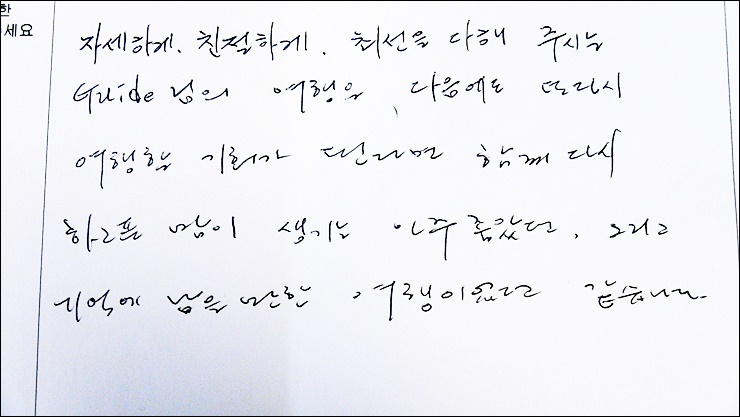 한
세요
자세하게. 친절하게. 최선을 다해 주시는
Guide님의 여행을 다음에도 또다시
여행할 기회가 된다면 함께 다시
하고픈 맘이 생기는 아주 좋았던, 그리고
기억에 남을만한 여행이었던 같습니다.